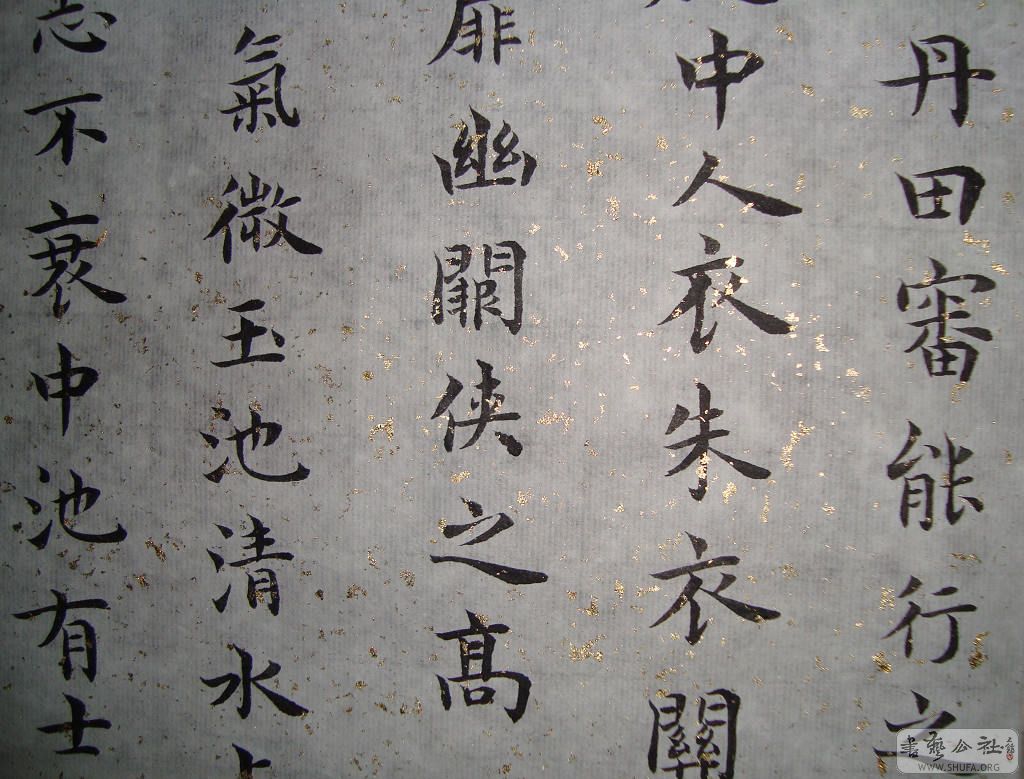 丹田審能行之
中人衣朱衣關
扉幽闕俠之髙
氣微玉池清水上
志不衰中池有士
書藝公社
WWW.SHUFA.ORG